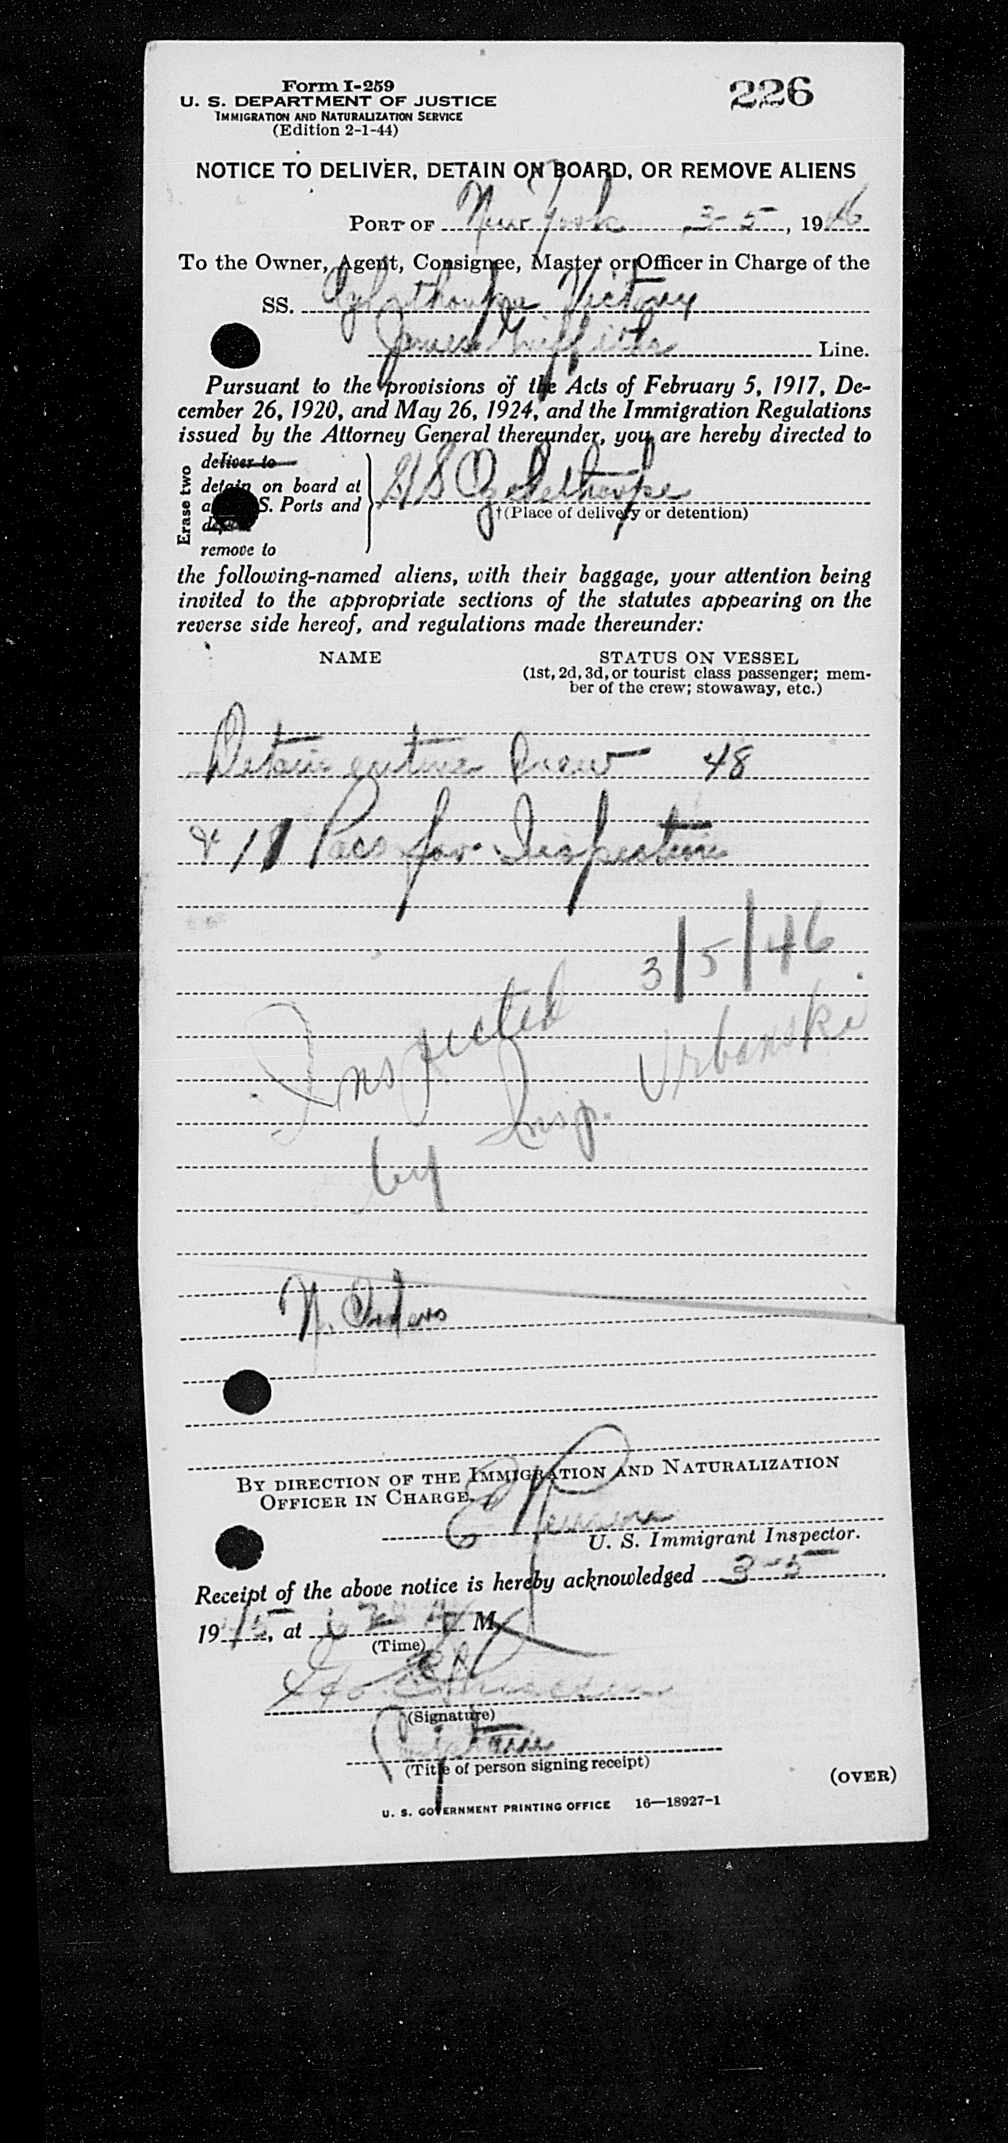 Form I-259
226
U. S. DEPARTMENT OF JUSTICE
IMMIGRATION AND NATURALIZATION SERVICE
(Edition 2-1-44)
NOTICE TO DELIVER, DETAIN ON BOARD, OR REMOVE ALIENS
PORT OF New York 3-5, 1946
To the Owner, Agent, Consignee, Master or Officer in Charge of the
SS. Oglethorpe Victory
James Griffiths Line.
Pursuant to the provisions of the Acts of February 5, 1917, De-
cember 26, 1920, and May 26, 1924, and the Immigration Regulations
issued by the Attorney General thereunder, you are hereby directed to
Erase two
deliver to
detain on board at
S. Ports and
remove to
SS Oglethorpe
†(Place of delivery or detention)
the following-named aliens, with their baggage, your attention being
invited to the appropriate sections of the statutes appearing on the
reverse side hereof, and regulations made thereunder:
NAME
STATUS ON VESSEL
(1st, 2d, 3d, or tourist class passenger; mem-
ber of the crew; stowaway, etc.)
Detain entire crew 48
& 11 Pacs for Inspection
3/5/46
Inspected
by Insp. Urbanski
N. Orders
BY DIRECTION OF THE IMMIGRATION AND NATURALIZATION
OFFICER IN CHARGE.
U. S. Immigrant Inspector.
Receipt of the above notice is hereby acknowledged 3-5
19, at M.
(Time)
Geo.
(Signature)
Captain
(Title of person signing receipt)
(OVER)
U. S. GOVERNMENT PRINTING OFFICE 16—18927-1